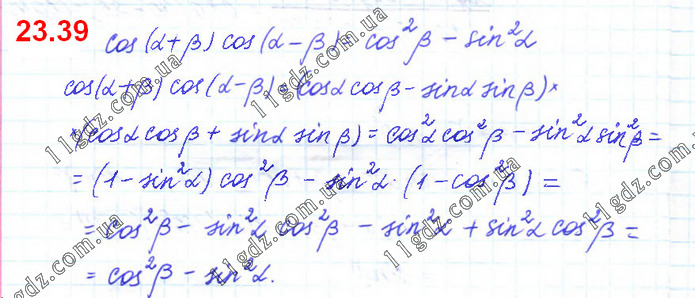 23.39
cos(α+β) cos(α-β) = cos²β - sin²α
cos(α+β) cos(α-β) = (cosα cosβ - sinα sinβ) ×
× (cosα cosβ + sinα sinβ) = cos²α cos²β - sin²α sin²β =
= (1 - sin²α) cos²β - sin²α · (1 - cos²β) =
= cos²β - sin²α cos²β - sin²α + sin²α cos²β =
= cos²β - sin²α.
11gdz.com.ua
11gdz.com.ua
11gdz.com.ua
11gdz.com.ua
11gdz.com.ua
11gdz.com.ua